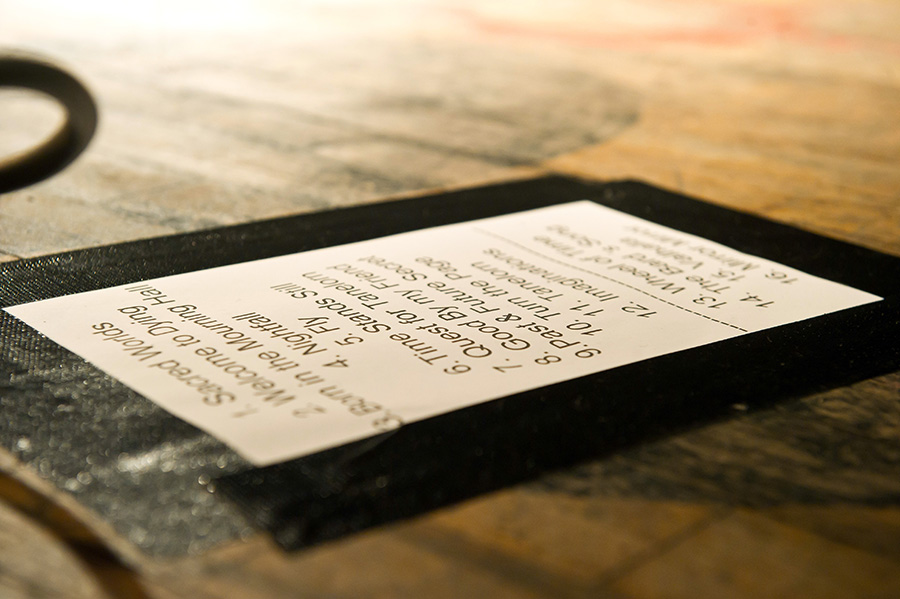 1. Sacred Worlds
2. Welcome to Dying
3. Born in the Mourning Hall
4. Nightfall
5. Fly
6. Time Stands Still
7. Quest for Tanelorn
8. Good By my Friend
9. Past & Future Secret
10. Turn the Page
11. Tanelorn
12. Imaginations
13. Wheel of Time
14. The Bard
15. Valhalla
16. Mirror Mirror